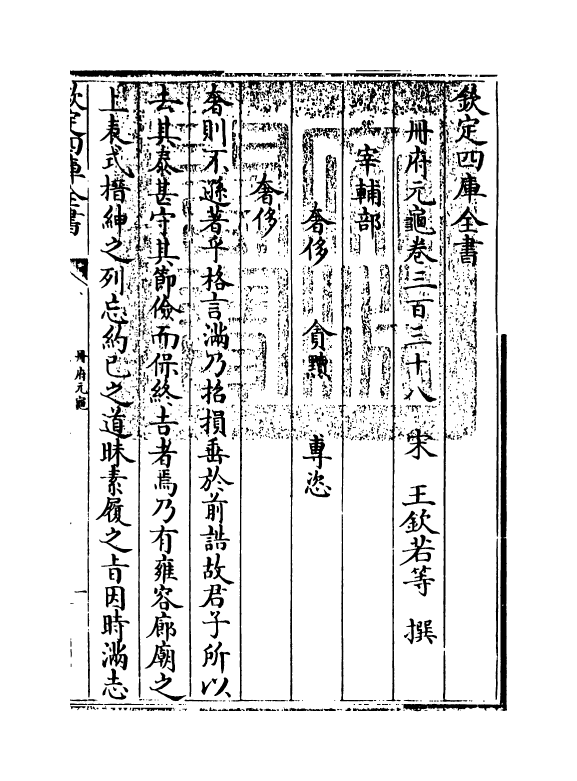 欽定四庫全書
冊府元龜卷三百三十八　宋　王欽若等　撰
宰輔部
奢侈　貪黷　專恣
奢侈
奢則不遜著乎格言滿乃招損垂於前誥故君子所以
去其泰甚守其節儉而保終吉者焉乃有雍容廊廟之
上表式搢紳之列忘約己之道昧素履之㫖因時滿志
欽定四庫全書
冊府元龜
一